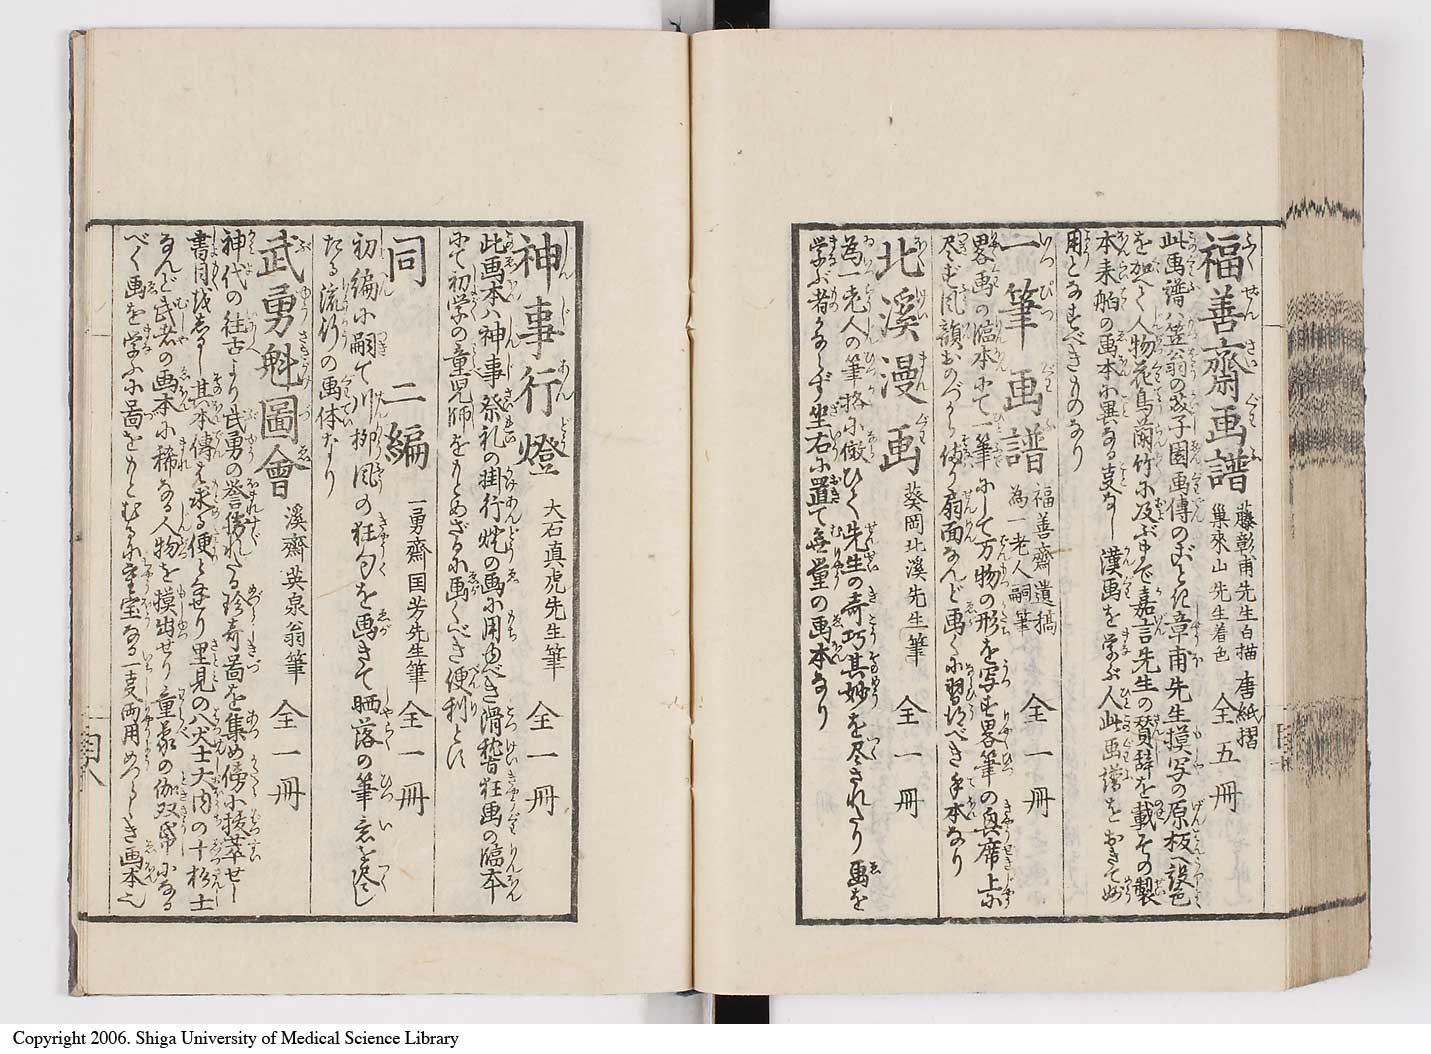 福善齋画譜 藤彰甫先生白描 唐紙摺 全五冊
巣來山先生着色
此画譜ハ笠翁の芥子園画傳のごとき章甫先生摸写の原板へ設色
を加へて人物花鳥蘭竹に及ぶまで嘉言先生の賛辞を載その製
本来舶の画本に異なる支なし漢画を学ぶ人此画譜をおきて妙
用となすべきものなり
一筆画譜 福善齋遺搞 全一冊
為一老人嗣筆
畧画の臨本にて一筆にして万物の形を写す畧筆の奥席上に
尽す風韻おのづから備り扇面なんど画くに習ふべき手本なり
北溪漫画 葵岡北溪先生筆 全一冊
為一老人の筆格に倣ひて先生の奇巧其妙を尽されたり画を
学ぶ者かならず坐右に置て無量の画本なり
神事行燈 大石真虎先生筆 全一冊
此画本ハ神事祭礼の掛行燈の画に用ゆべき滑稽狂画の臨本
にて初学の童児師をもとめざるに画くべき便利とす
同二編 一勇齋国芳先生筆 全一冊
初編に嗣て川柳風の狂句を画きて晒落の筆意を尽し
たる流行の画体なり
武勇魁圖會 溪齋英泉翁筆 全一冊
神代の往古より武勇の誉勝れたる珍奇の圖を集め傍に抜萃せし
書目をしるし其本傳を求る便となせり里見の八犬士大内の十杉士
なんど武者の画本に稀なる人物を摸出せり童蒙の伽双帋になる
べく画を学ぶに圖をもとむるに重宝なる一支両用めづらしき画本也
Copyright 2006. Shiga University of Medical Science Library